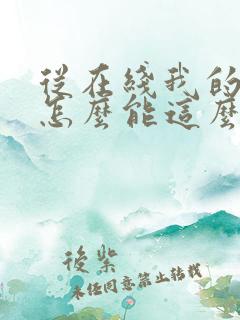 從在綫我的
怎麼能這麼
後紫
未经同意禁止转载